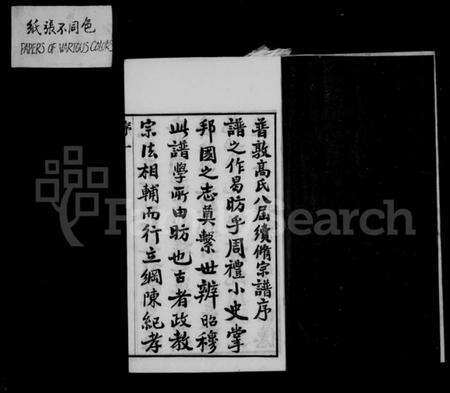 紙張不同色
PAPERS OF VARIOUS COLORS
普敦高氏八屆續脩宗譜序
譜之作昜昉乎周禮小史掌
邦國之志奠繫世辨昭穆
此譜學所由昉也古者政教
宗法相輔而行立綱陳紀孝
序一